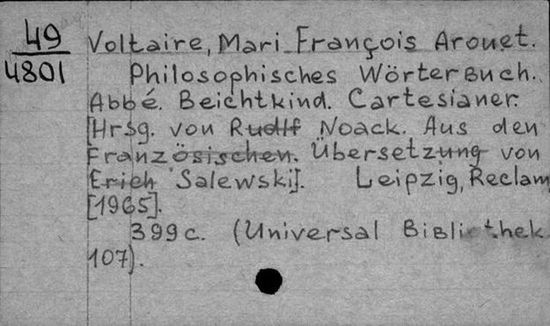 49
4801
Voltaire, Mari François Arouet.
Philosophisches Wörterbuch.
Abbé. Beichtkind. Cartesianer.
[Hrsg. von Rudlf Noack. Aus den
Französischen. Übersetzung von
Erich Salewski]. Leipzig, Reclam
[1965].
399c. (Universal Bibliothek
107).